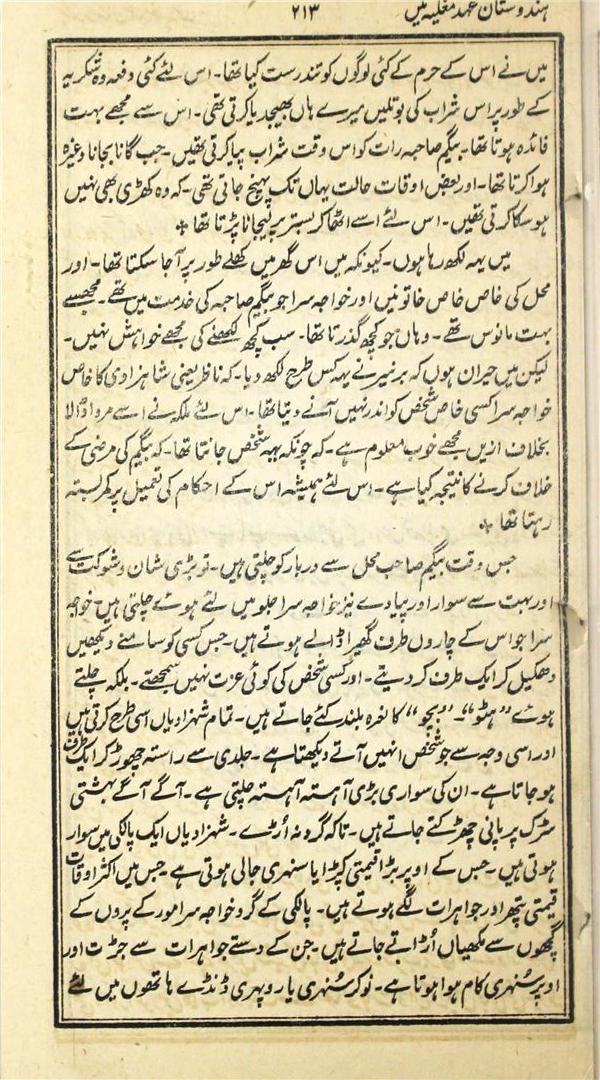 ہندوستان عہد مغلیہ میں
۲۱۳
میں نے اس کے حرم کے کئی لوگوں کو تندرست کیا تھا۔ اس لئے کئی دفعہ وہ شکریہ
کے طور پر اس شراب کی بوتلیں میرے ہاں بھیجدیا کرتی تھی۔ اس سے مجھے بہت
فائدہ ہوتا تھا۔ بیگم صاحبہ رات کو اس وقت شراب پیا کرتی تھیں۔ جب گانا بجانا وغیرہ
ہوا کرتا تھا۔ اور بعض اوقات حالت یہاں تک پہنچ جاتی تھی۔ کہ وہ کھڑی بھی نہیں
ہو سکا کرتی تھیں۔ اس لئے اسے اٹھا کر بستر پر لیجانا پڑتا تھا ❖
میں یہہ لکھ رہا ہوں۔ کیونکہ میں اس گھر میں کھلے طور پر آ جا سکتا تھا۔ اور
محل کی خاص خاص خاتونیں اور خواجہ سرا جو بیگم صاحبہ کی خدمت میں تھے۔ مجھسے
بہت مانوس تھے۔ وہاں جو کچھ گذرتا تھا۔ سب کچھ لکھنے کی مجھے خواہش نہیں۔
لیکن میں حیران ہوں کہ برنیر نے یہہ کس طرح لکھ دیا۔ کہ ناظر یعنی شاہزادی کا خاص
خواجہ سرا کسی خاص شخص کو اندر نہیں آنے دیتا تھا۔ اس لئے ملکہ نے اسے مروا ڈالا
بخلاف ازیں مجھے خوب معلوم ہے۔ کہ چونکہ یہہ شخص جانتا تھا۔ کہ بیگم کی مرضی کے
خلاف کرنے کا نتیجہ کیا ہے۔ اس لئے ہمیشہ اس کے احکام کی تعمیل پر کمربستہ
رہتا تھا ❖
جس وقت بیگم صاحب محل سے دربار کو چلتی ہیں۔ تو بڑی شان و شوکت سے
اور بہت سے سوار اور پیادے نیز خواجہ سرا جلو میں لئے ہوئے چلتی ہیں۔ خواجہ
سرا جو اس کے چاروں طرف گھیرا ڈالے ہوتے ہیں۔ جس کسی کو سامنے دیکھیں
دھکیل کر ایک طرف کر دیتے۔ اور کسی شخص کی کوئی عزت نہیں سمجھتے۔ بلکہ چلتے
ہوئے "ہٹو"۔ "بچو" کا نعرہ بلند کئے جاتے ہیں۔ تمام شہزادیاں اسی طرح کرتی ہیں
اور اسی وجہ سے جو شخص انہیں آتے دیکھتا ہے۔ جلدی سے راستہ چھوڑ کر ایک طرف
ہو جاتا ہے۔ ان کی سواری بڑی آہستہ آہستہ چلتی ہے۔ آگے آگے بہشتی
سڑک پر پانی چھڑکتے جاتے ہیں۔ تاکہ گرد نہ اُڑے۔ شہزادیاں ایک پالکی میں سوار
ہوتی ہیں۔ جس کے اوپر بڑا قیمتی کپڑا یا سنہری جالی ہوتی ہے۔ جس میں اکثر اوقات
قیمتی پتھر اور جواہرات لگے ہوتے ہیں۔ پالکی کے گرد خواجہ سرا مور کے پروں کے
گچھوں سے مکھیاں اُڑاتے جاتے ہیں۔ جن کے دستے جواہرات سے جڑت اور
اوپر سُنہری کام ہوا ہوتا ہے۔ نوکر سُنہری یا روپہری ڈنڈے ہاتھوں میں لئے